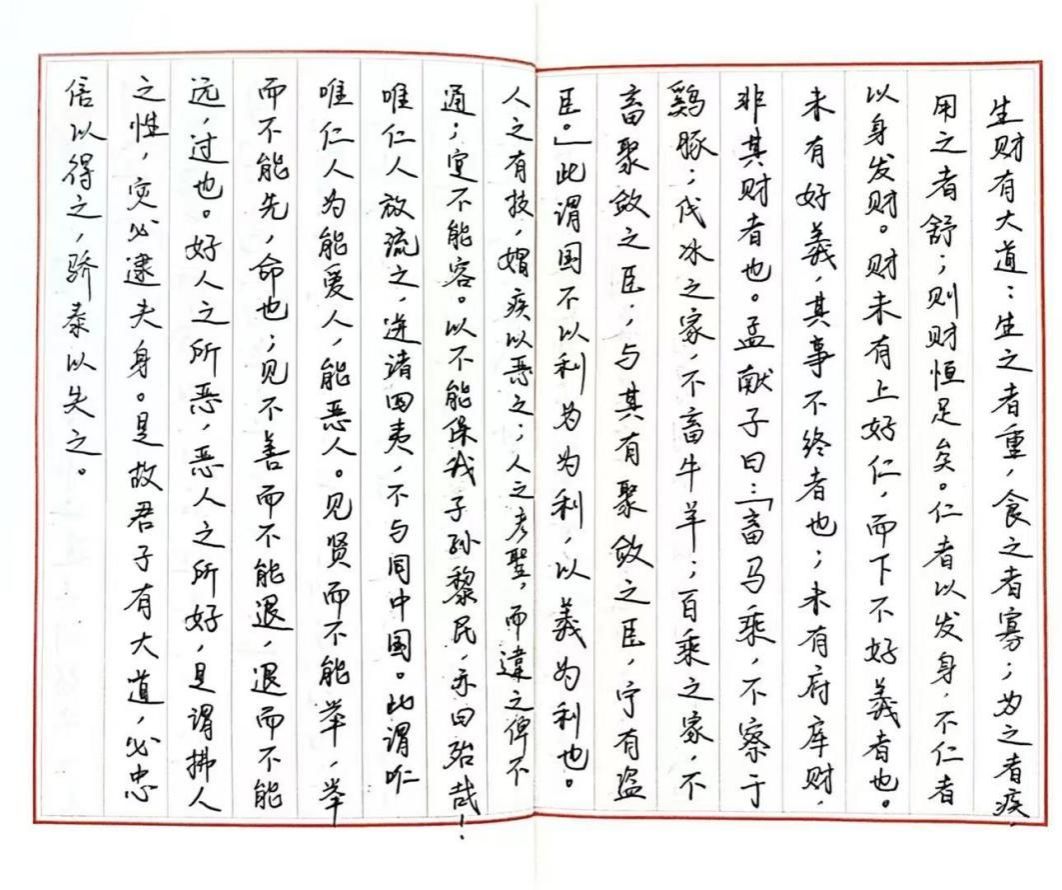 生财有大道：生之者重，食之者寡；为之者疾，
用之者舒；则财恒足矣。仁者以发身，不仁者
以身发财。财未有上好仁，而下不好義者也。
未有好義，其事不终者也；未有府库财，
非其财者也。孟献子曰：「畜马乘，不察于
鸡豚；伐冰之家，不畜牛羊；百乘之家，不
畜聚敛之臣；与其有聚敛之臣，宁有盗
臣。」此谓国不以利为为利，以義为利也。
人之有技，媢疾以恶之；人之彦聖，而違之俾不
通；寔不能容。以不能保我子孙黎民，亦曰殆哉！
唯仁人放流之，迸诸四夷，不与同中国。此谓
唯仁人为能爱人，能恶人。见贤而不能举，举
而不能先，命也；见不善而不能退，退而不能
远，过也。好人之所恶，恶人之所好，是谓拂人
之性，灾必逮夫身。是故君子有大道，必忠
信以得之，骄泰以失之。